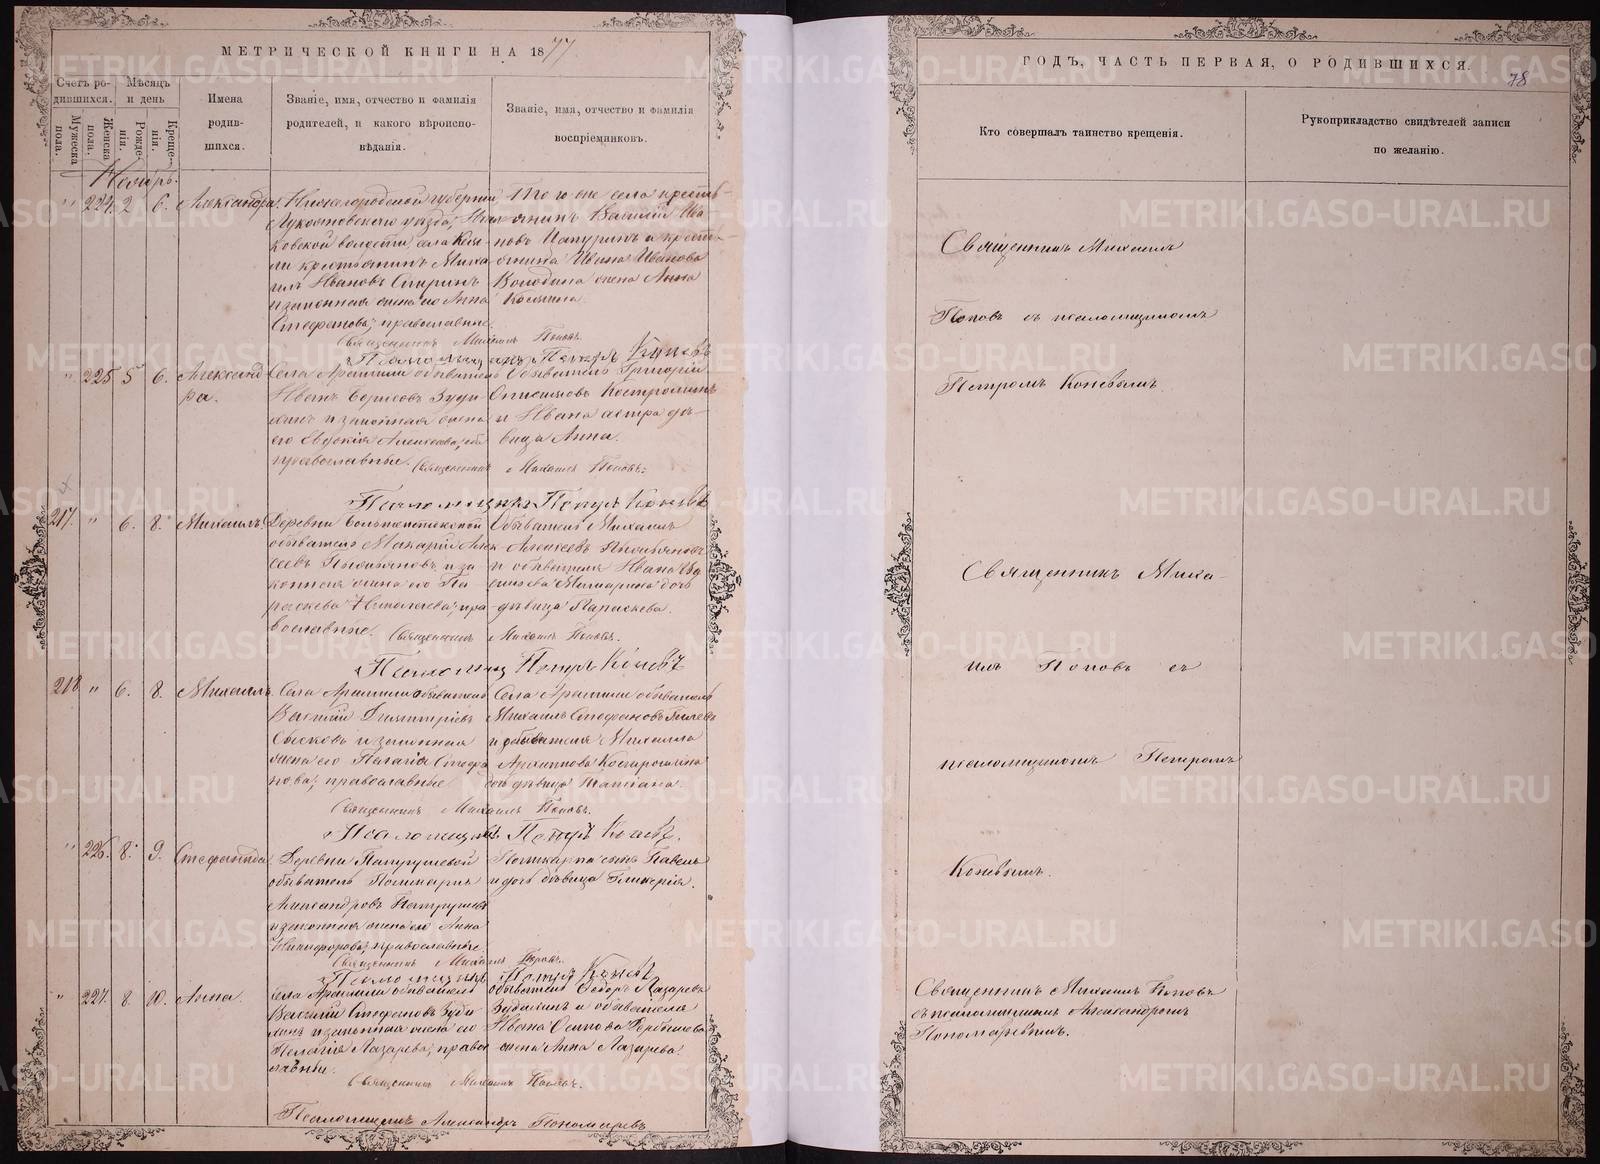 МЕТРИЧЕСКОЙ КНИГИ НА 1877
Счетъ ро-
дившихся.
Мужеска
пола.
Женска
пола.
Мѣсяцъ
и день
Рожде-
нія.
Креще-
нія.
Имена
родив-
шихся.
Званіе, имя, отчество и фамилія
родителей, и какого вѣроиспо-
вѣданія.
Званіе, имя, отчество и фамилія
воспріемниковъ.
Ноябрь.
" 224. 2 6. Александра
Нижегородской губерніи
Лукояновскаго уѣзда,
ковской волости, села
ли крестьянинъ Миха
илъ Ивановъ Спиринъ
и законная жена его Анна
Стефанова; православные.
Того же села кресть-
янинъ Василій Ива
новъ Цапуринъ и кресть-
янина Ивана Иванова
Володина жена Анна
Священникъ Михаилъ Поповъ.
Псаломщикъ Петръ Коневъ
" 225 5 6. Александ
ра.
Села Арамили обыватель
Иванъ Борисовъ Зуди
и законная жена
его Евдокія Алексѣева; оба
православные.
Обыватель Григорій
Костромин
и Ивана сестра дѣ-
вица Анна.
Священникъ Михаилъ Поповъ.
Псаломщикъ Петръ Коневъ
217. " 6. 8. Михаилъ
Деревни
обыватель Макарій Алек
сеевъ и за
конная жена его Па
раскева Николаева; пра
вославные.
Обыватель Михаилъ
Алексѣевъ
и обывателя Ивана
дочь
дѣвица Параскева.
Священникъ Михаилъ Поповъ.
Псаломщикъ Петръ Коневъ
218 " 6. 8. Михаилъ.
Села Арамили обыватель
Василій Димитріевъ
Сысковъ и законная
жена его Пелагія Стефа
нова; православные
Села Арамили обыватель
Михаилъ Стефановъ
и обывателя Михаила
Архипова Костромина
дочь дѣвица Татіана.
Священникъ Михаилъ Поповъ.
Псаломщикъ Петръ Коневъ.
" 226. 8. 9. Стефанида
Деревни Патрушевой
обыватель Поликарпъ
Александровъ Патрушевъ
и законная жена его Анна
Никифорова; православные
Поликарпа сынъ Павелъ
и дочь дѣвица Гликерія.
Священникъ Михаилъ Поповъ.
Псаломщикъ Петръ Коневъ
" 227. 8. 10. Анна.
Села Арамили обыватель
Василій Стефановъ Зуди
и законная жена его
Пелагія Лазарева; право
славные.
Обыватель Ѳедоръ Лазаревъ
и обывателя
Ивана Осипова
жена Анна Лазарева.
Священникъ Михаилъ Поповъ.
Псаломщикъ Александръ Пономаревъ
ГОДЪ, ЧАСТЬ ПЕРВАЯ, О РОДИВШИХСЯ.
78
Кто совершалъ таинство крещенія.
Рукоприкладство свидѣтелей записи
по желанію.
Священникъ Михаилъ
Поповъ съ псаломщикомъ
Петромъ Коневымъ.
Священникъ Миха-
илъ Поповъ съ
псаломщикомъ Петромъ
Коневымъ.
Священникъ Михаилъ Поповъ
съ псаломщикомъ Александромъ
Пономаревымъ.
METRIKI.GASO-URAL.RU